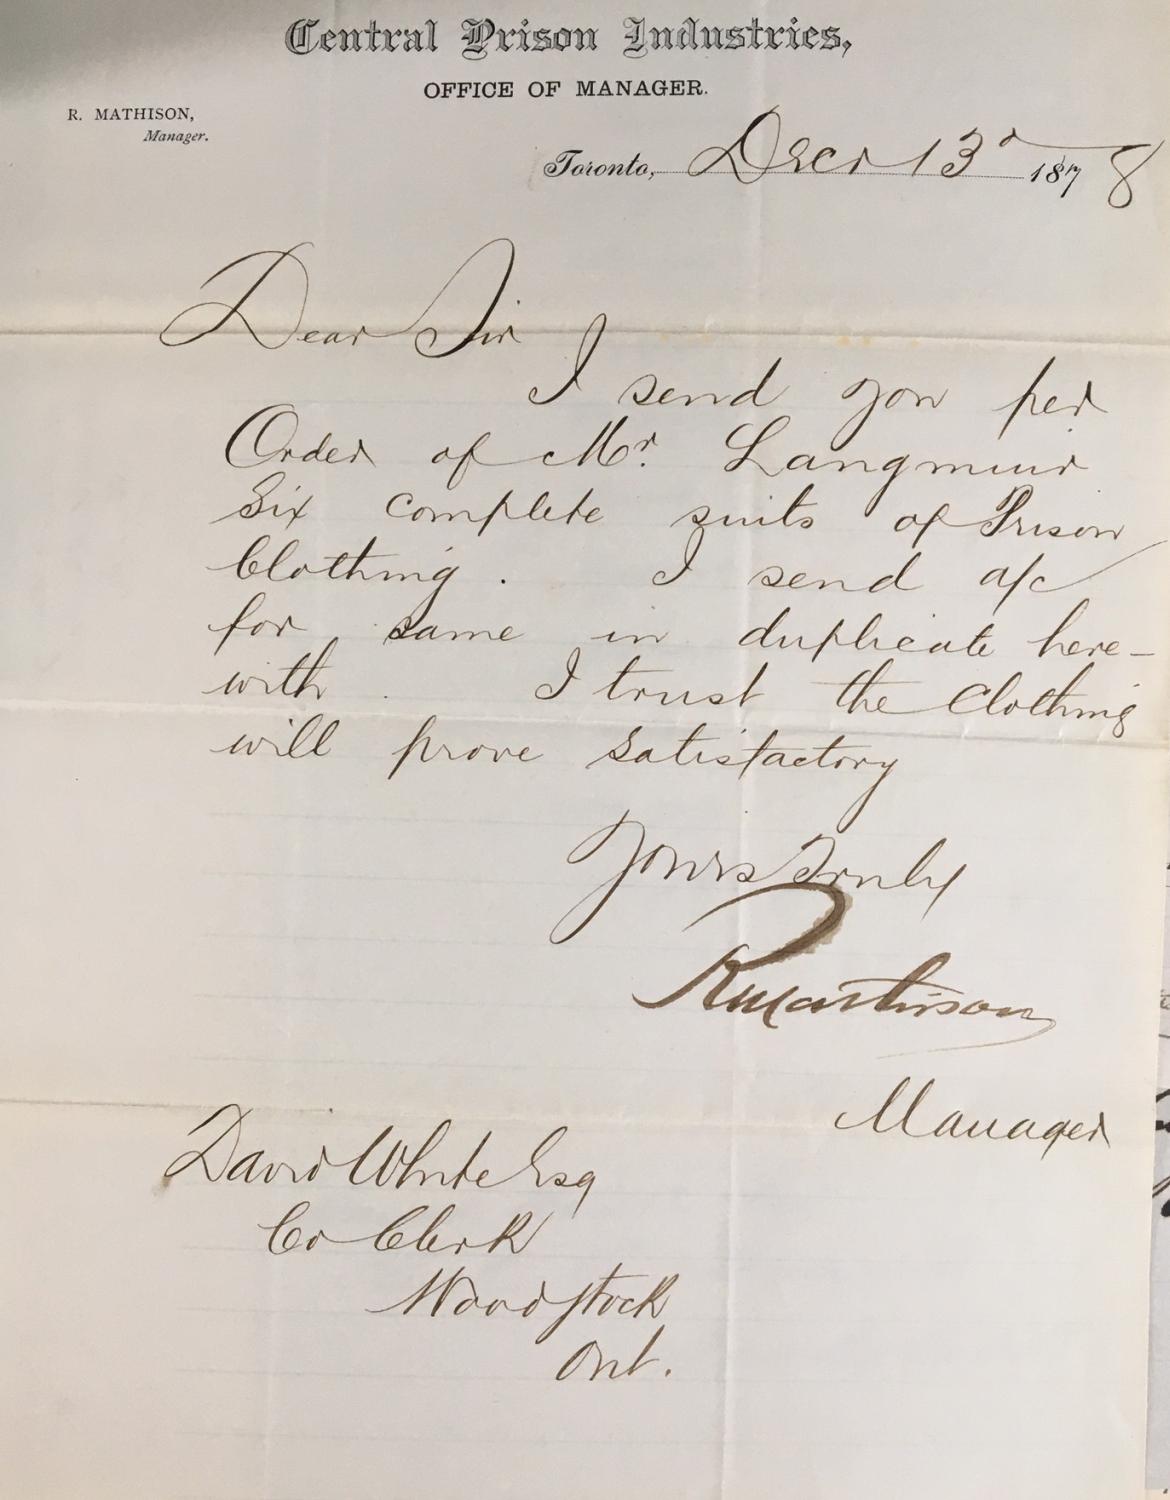 Central Prison Industries,
OFFICE OF MANAGER.
R. MATHISON,
Manager.
Toronto, Decr 13d 1878
Dear Sir
I send you per
Order of Mr. Langmuir
Six complete suits of Prison
Clothing. I send a/c
for same in duplicate here-
with. I trust the Clothing
will prove satisfactory
Yours Truly
R Mathison
Manager
David White Esq
Co Clerk
Woodstock
Ont.